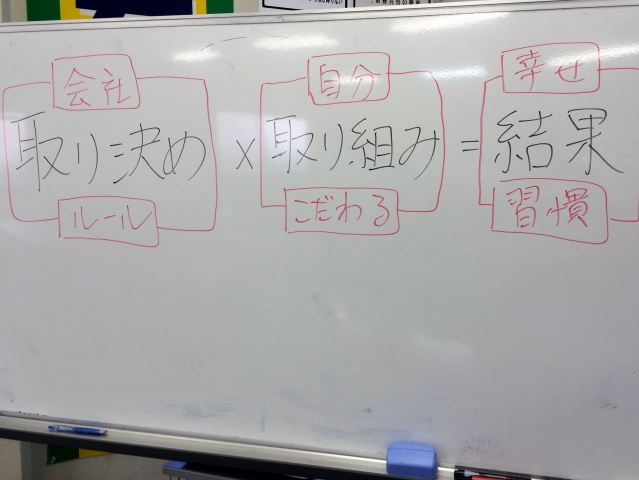 会社 自分 幸せ
取り決め × 取り組み = 結果
ルール こだわる 習慣